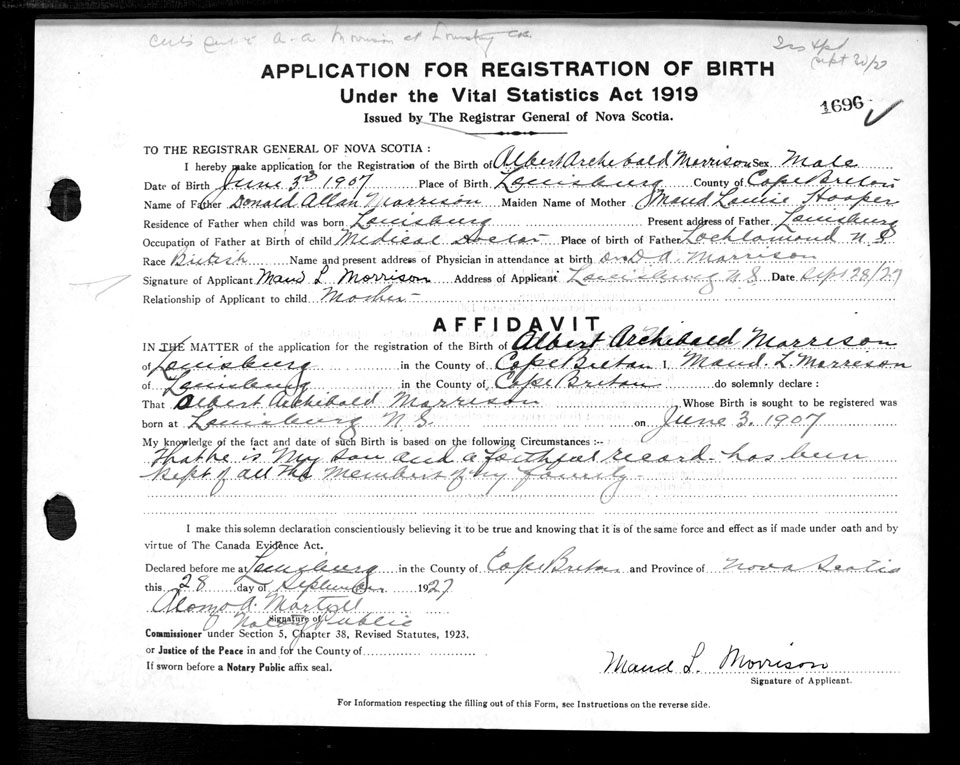 A. A. Morrison at
Sept 30/27
APPLICATION FOR REGISTRATION OF BIRTH
Under the Vital Statistics Act 1919
1696
Issued by The Registrar General of Nova Scotia.
TO THE REGISTRAR GENERAL OF NOVA SCOTIA :
I hereby make application for the Registration of the Birth of Albert Archibald Morrison Sex Male
Date of Birth June 3rd 1907 Place of Birth Louisburg County of Cape Breton
Name of Father Donald Allan Morrison Maiden Name of Mother Maud Louise Hooper
Residence of Father when child was born Louisburg Present address of Father Louisburg
Occupation of Father at Birth of child Medical Doctor Place of birth of Father Lochlomond N S
Race British Name and present address of Physician in attendance at birth Dr D A Morrison
Signature of Applicant Maud L Morrison Address of Applicant Louisburg N.S Date Sept 28/27
Relationship of Applicant to child Mother
AFFIDAVIT
IN THE MATTER of the application for the registration of the Birth of Albert Archibald Morrison
of Louisburg in the County of Cape Breton I, Maud L. Morrison
of Louisburg in the County of Cape Breton do solemnly declare :
That Albert Archibald Morrison , Whose Birth is sought to be registered was
born at Louisburg N.S. on June 3. 1907
My knowledge of the fact and date of such Birth is based on the following Circumstances :--
That he is My Son and a faithful record has been
kept of all the members of my family
I make this solemn declaration conscientiously believing it to be true and knowing that it is of the same force and effect as if made under oath and by
virtue of The Canada Evidence Act.
Declared before me at Louisburg in the County of Cape Breton and Province of Nova Scotia
this 28 day of September 1927
A. Martell
Notary Public
Signature of
Commissioner under Section 5, Chapter 38, Revised Statutes, 1923.
or Justice of the Peace in and for the County of
If sworn before a Notary Public affix seal.
Maud L. Morrison
Signature of Applicant.
For Information respecting the filling out of this Form, see Instructions on the reverse side.